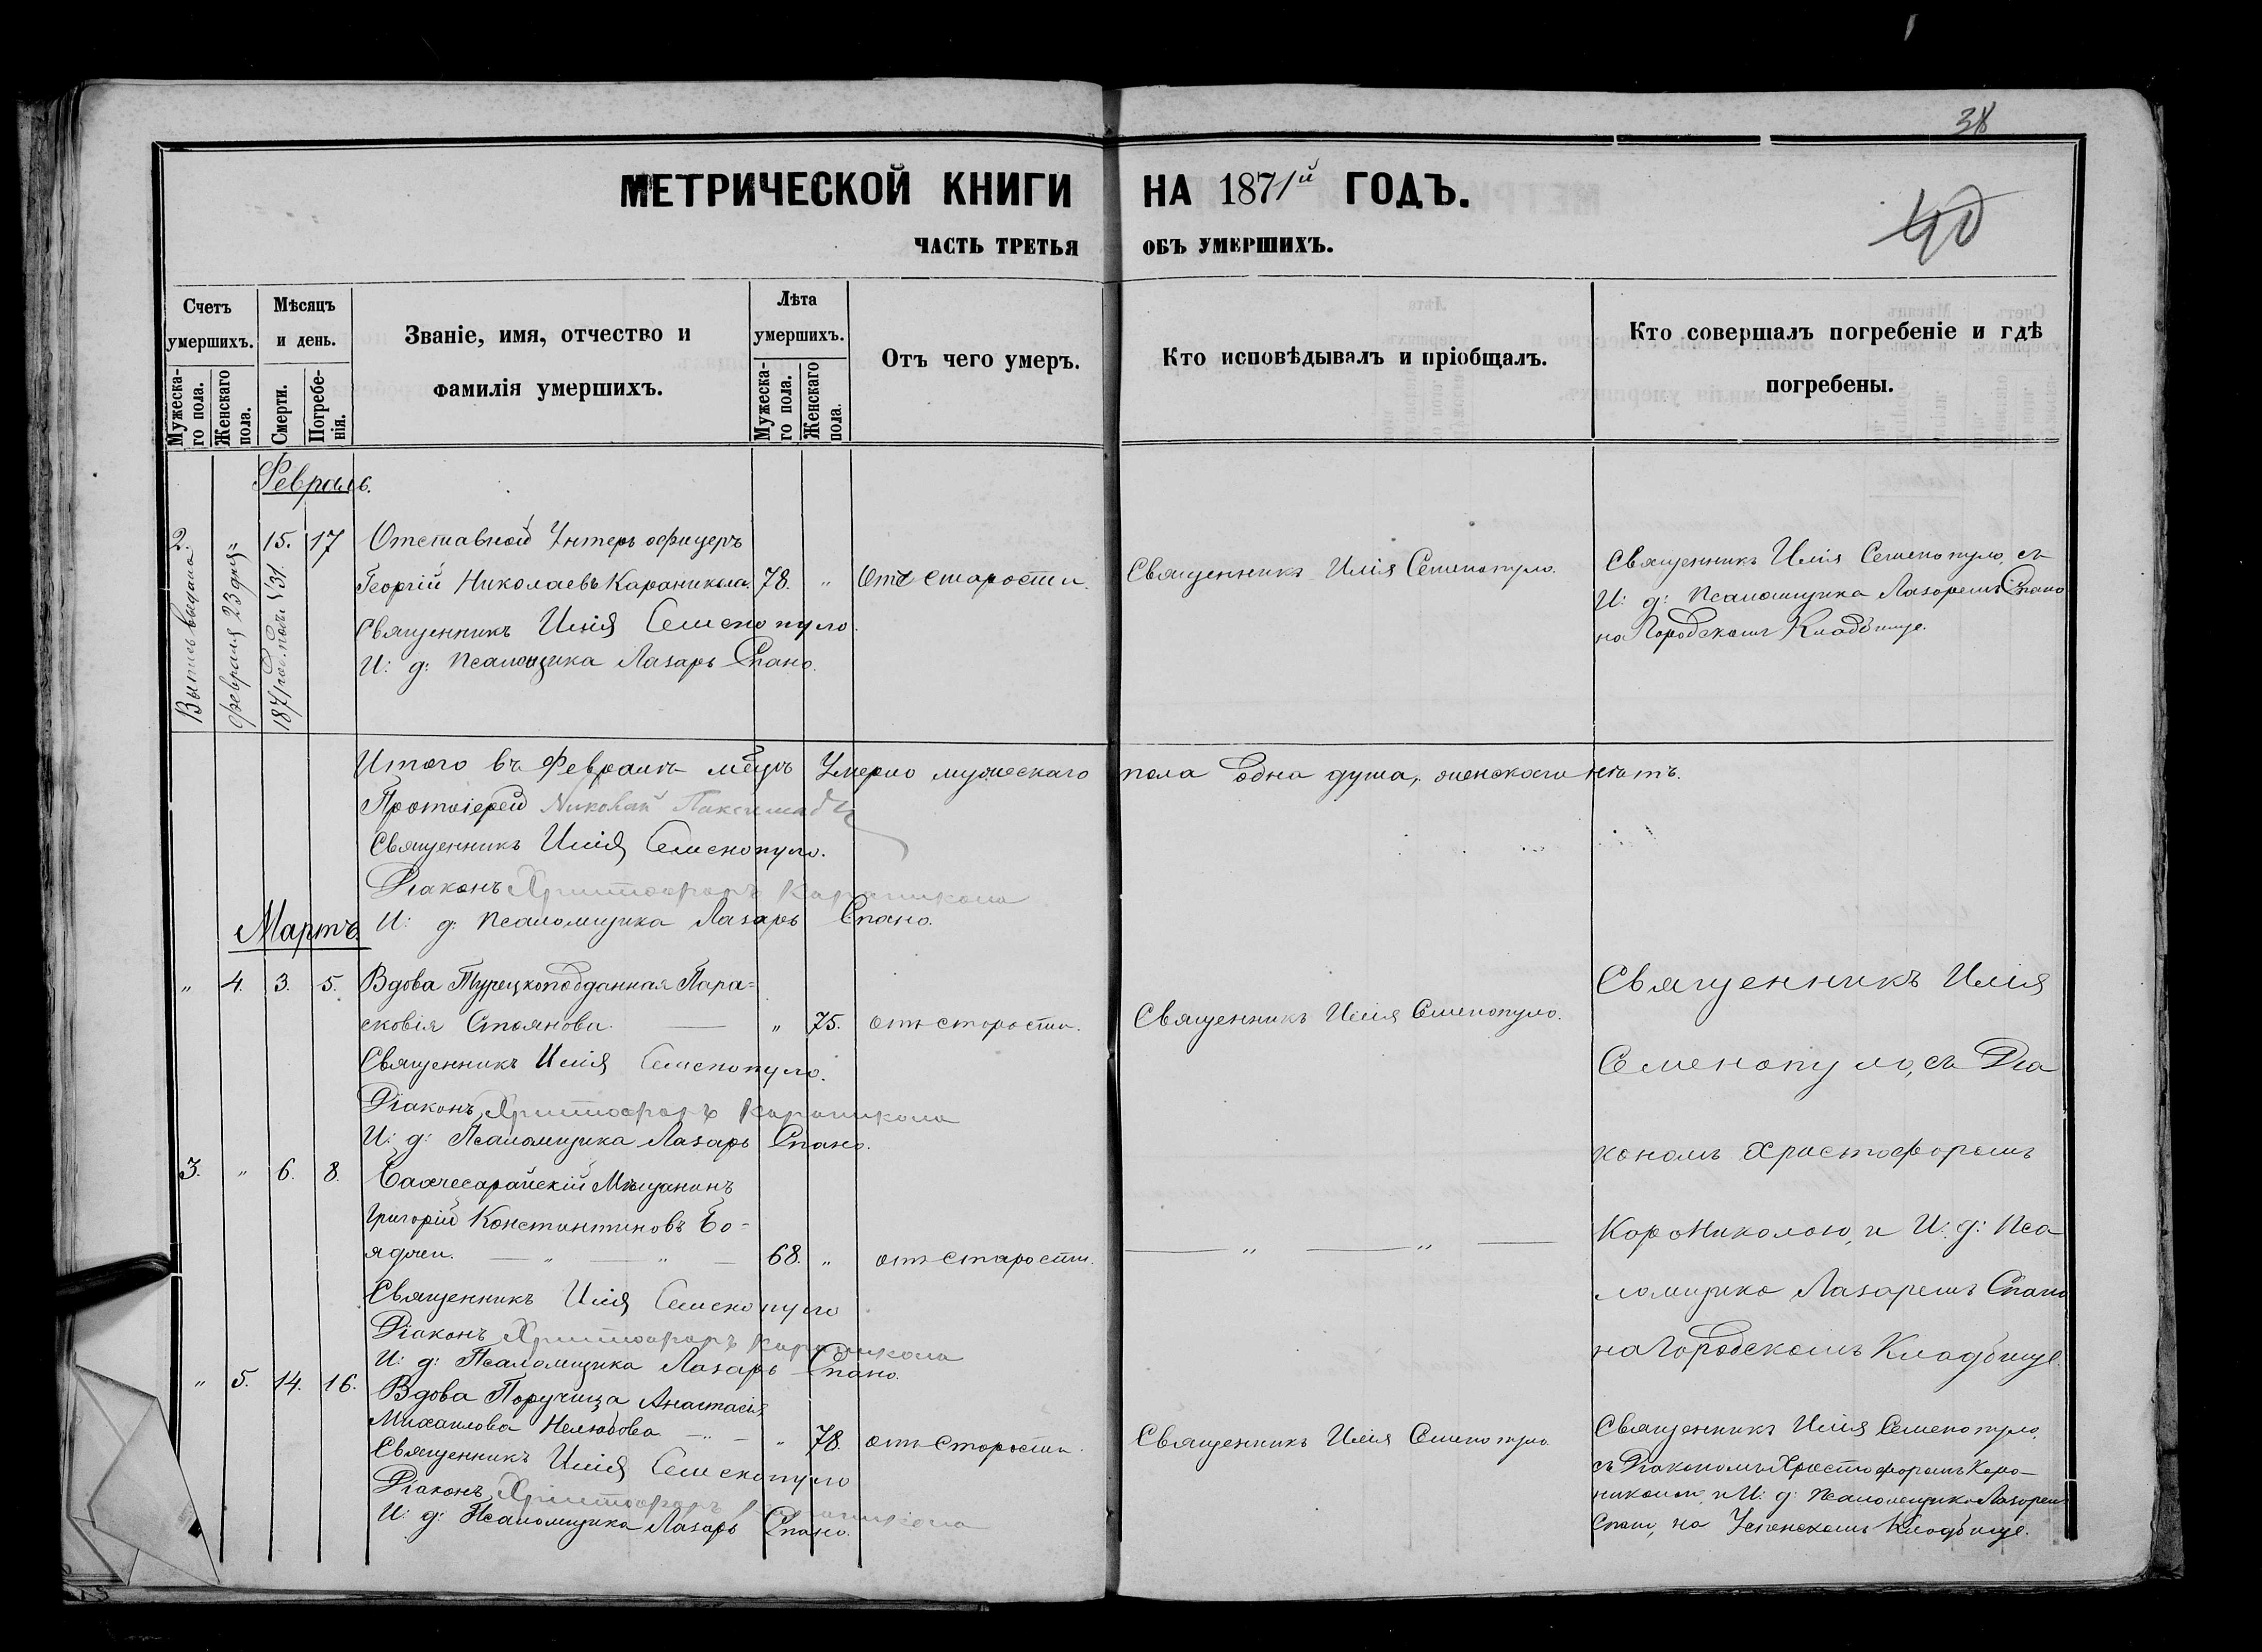 38
40
МЕТРИЧЕСКОЙ КНИГИ НА 1871й ГОДЪ.
ЧАСТЬ ТРЕТЬЯ ОБЪ УМЕРШИХЪ.
Счетъ умершихъ.
Мужеска-го пола.
Женскаго пола.
Мѣсяцъ и день.
Смерти.
Погребе-нія.
Званіе, имя, отчество и фамилія умершихъ.
Лѣта умершихъ.
Мужеска-го пола.
Женскаго пола.
Отъ чего умеръ.
Кто исповѣдывалъ и пріобщалъ.
Кто совершалъ погребеніе и гдѣ погребены.
Февраль.
2. " 15. 17 Отставной Унтеръ офицеръ
Георгій Николаевъ Караникола. 78. " Отъ старости.
Священникъ Илія Семенопуло.
И: д: Псаломщика Лазарь Спано.
Выпись выдана
Февраля 23 дня
187 год. подъ № 31.
Священникъ Илія Семенопуло.
Священникъ Илія Семенопуло, съ
И: д: Псаломщика Лазаремъ Спано
на Городскомъ Кладбище.
Итого въ Февралѣ мѣцѣ Умерло мужескаго пола одна душа, женскаго нѣтъ.
Протоіерей Николай Паксимади
Священникъ Илія Семенопуло.
Діаконъ Христофоръ Караникола
И: д: Псаломщика Лазарь Спано.
Мартъ.
" 4. 3. 5. Вдова Турецкоподданная Пара=
сковія Стоянова. " 75. отъ старости.
Священникъ Илія Семенопуло.
Діаконъ Христофоръ Караникола
И: д: Псаломщика Лазарь Спано.
Священникъ Илія Семенопуло.
3. " 6. 8. Бахчесарайскій Мѣщанинъ
Григорій Константиновъ Бо=
яджи. — " — " — 68. " отъ старости.
Священникъ Илія Семенопуло
Діаконъ Христофоръ Караникола
И: д: Псаломщика Лазарь Спано.
— " — " —
Священникъ Илія
Семенопуло, съ Діа
кономъ Христофоромъ
Караниколою, и И: д: Пса
ломщика Лазаремъ Спано
на Городскомъ Кладбище.
" 5. 14. 16. Вдова Поручица Анастасія
Михаилова Нелюбова — " — " 78. отъ старости.
Священникъ Илія Семенопуло
Діаконъ Христофоръ Караникола
И: д: Псаломщика Лазарь Спано.
Священникъ Илія Семенопуло
Священникъ Илія Семенопуло,
съ Діакономъ Христофоромъ Кара—
николою, и И: д: Псаломщика Лазаремъ
Спано, на Успенскомъ Кладбище.